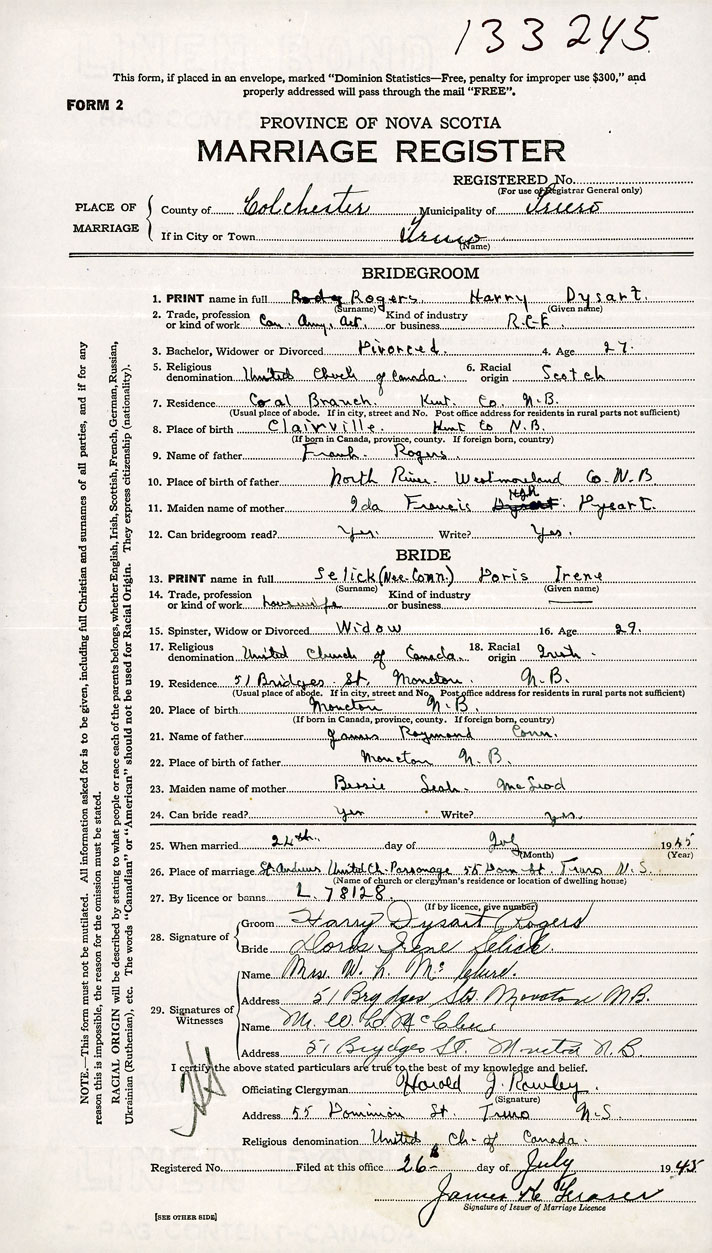 133245
This form, if placed in an envelope, marked "Dominion Statistics—Free, penalty for improper use $300," and
properly addressed will pass through the mail "FREE".
FORM 2
PROVINCE OF NOVA SCOTIA
MARRIAGE REGISTER
REGISTERED No.
(For use of Registrar General only)
PLACE OF MARRIAGE
County of Colchester Municipality of Truro
If in City or Town Truro
(Name)
BRIDEGROOM
1. PRINT name in full Rogers Harry Dysart.
(Surname) (Given name)
2. Trade, profession or kind of work Can. Army, Act. Kind of industry or business R.C.E.
3. Bachelor, Widower or Divorced Divorced. 4. Age 27.
5. Religious denomination United Church of Canada. 6. Racial origin Scotch
7. Residence Coal Branch. Kent. Co. N.B.
(Usual place of abode. If in city, street and No. Post office address for residents in rural parts not sufficient)
8. Place of birth Clairville. Kent Co N.B.
(If born in Canada, province, county. If foreign born, country)
9. Name of father Frank Rogers.
10. Place of birth of father North River. Westmoreland Co. N.B
11. Maiden name of mother Ida Francis Dysart.
12. Can bridegroom read? Yes. Write? Yes.
BRIDE
13. PRINT name in full Selick (Nee. Conn.) Doris Irene
(Surname) (Given name)
14. Trade, profession or kind of work housewife Kind of industry or business
15. Spinster, Widow or Divorced Widow 16. Age 29.
17. Religious denomination United Church of Canada. 18. Racial origin Irish.
19. Residence 51 Bridges St. Moncton. N.B.
(Usual place of abode. If in city, street and No. Post office address for residents in rural parts not sufficient)
20. Place of birth Moncton N.B.
(If born in Canada, province, county. If foreign born, country)
21. Name of father James Raymond Conn.
22. Place of birth of father Moncton N.B.
23. Maiden name of mother Bessie Leah. McLeod
24. Can bride read? Yes Write? yes.
25. When married 24th. day of July 1945
(Month) (Year)
26. Place of marriage St. Andrews United Ch. Parsonage 55 Dom. St. Truro N.S.
(Name of church or clergyman's residence or location of dwelling house)
27. By licence or banns L. 78128.
(If by licence, give number)
28. Signature of
Groom Harry Dysart Rogers
Bride Doris Irene Selick.
29. Signatures of Witnesses
Name Mrs. W. L. McClure.
Address 51 Brydges St. Moncton N.B.
Name Mr. W L McClure
Address 51 Brydges St. Moncton N.B.
I certify the above stated particulars are true to the best of my knowledge and belief.
Officiating Clergyman Harold J. Rowley.
(Signature)
Address 55 Dominion St. Truro N.S.
Religious denomination United Ch. of Canada.
Registered No. Filed at this office 26th day of July 1945
James Fraser
Signature of Issuer of Marriage Licence
[SEE OTHER SIDE]
NOTE.—This form must not be mutilated. All information asked for is to be given, including full Christian and surnames of all parties, and if for any
reason this is impossible, the reason for the omission must be stated.
RACIAL ORIGIN will be described by stating to what people or race each of the parents belongs, whether English, Irish, Scottish, French, German, Russian,
Ukrainian (Ruthenian), etc. The words "Canadian" or "American" should not be used for Racial Origin. They express citizenship (nationality).